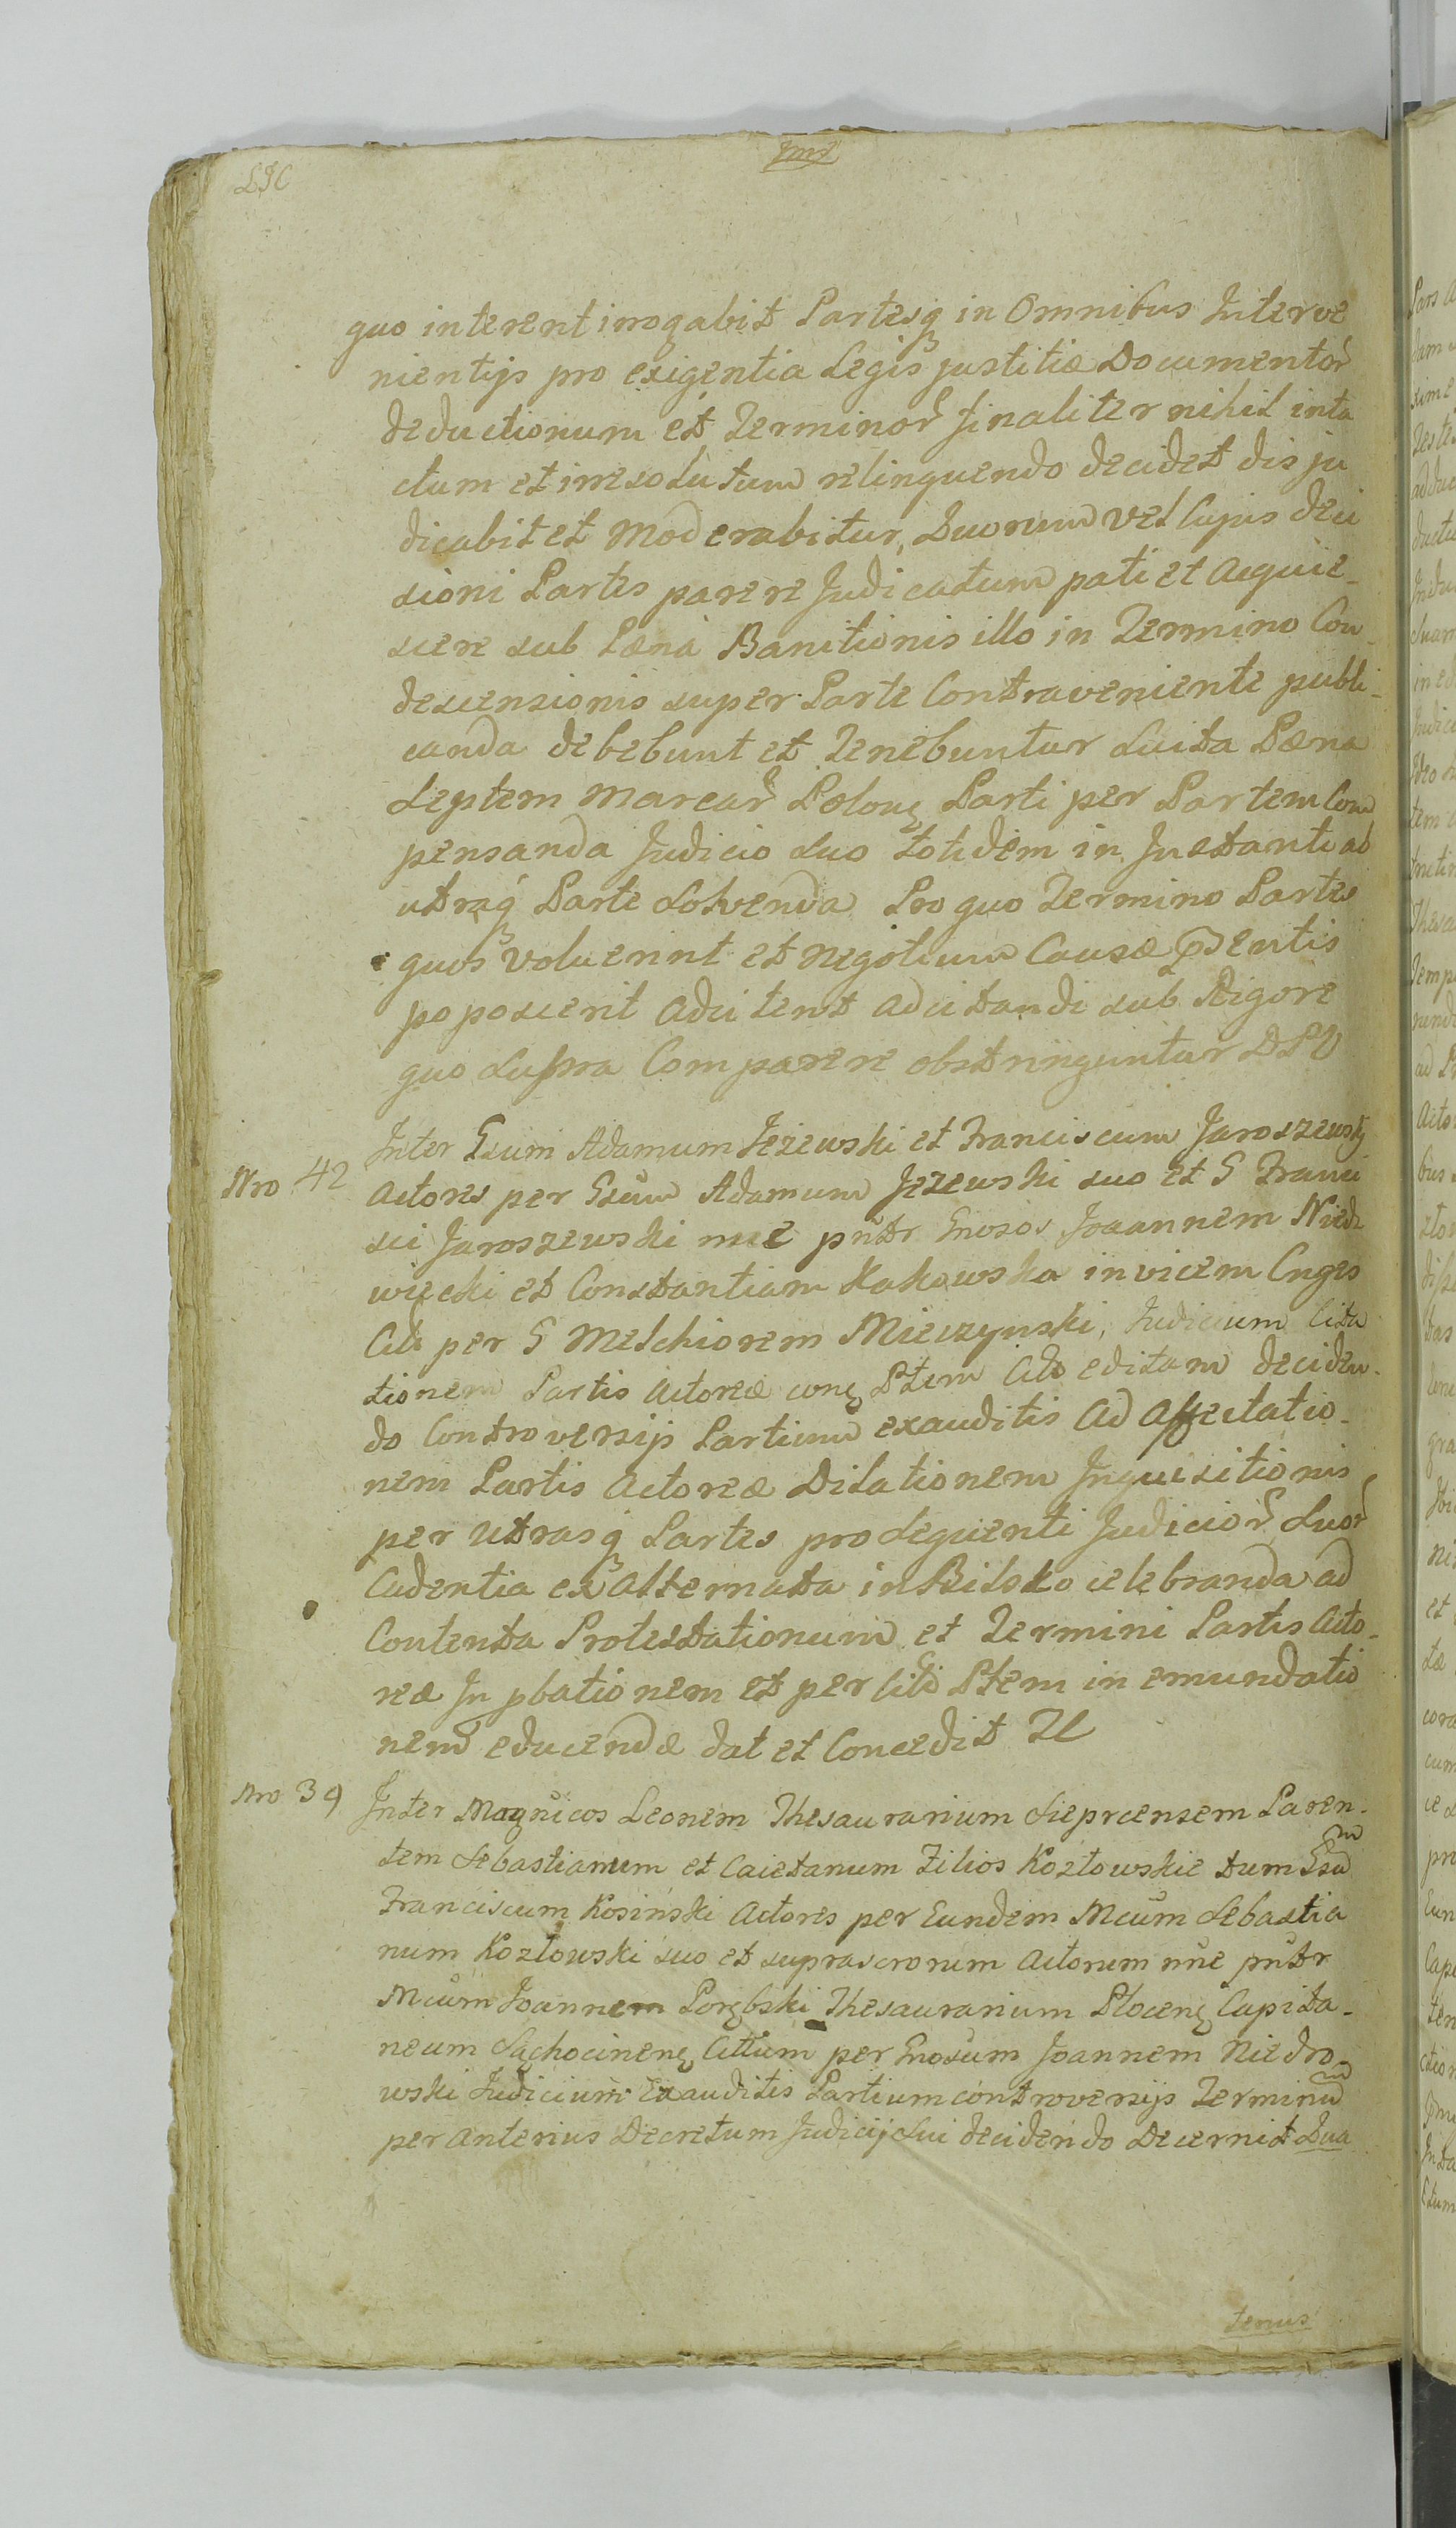 quo interent irrogabit Partesq in Omnibus Interve
nientijs pro exigentia Legis justitiæ Documentor
deductionum et Terminor finaliter nihil inta
ctum et irresolutum relinquendo decidet disju
dicabit et Moderabitur, Quorum vel Cujus deci
sioni Partes parere Judicatum pati et Acquie-
scere sub Pæna Banitionis illo in Termino Con-
descensionis super Parte Contraveniente publi-
canda debebunt et Tenebuntur Luita Pæna
Septem Marcar Polon Parti per Partem Com
pensanda Judicio suo totidem in Instanti ab
utraq Parte Solvenda Pro quo Termino Partes
quos voluerint et negotium Causæ
poposcerit adcitent adcitandi sub Rigore
quo Supra Comparere obstringuntur DPU
Nro 42 Inter Gsum Adamum Jeżewski et Franciscum Jaroszewski
Actores per Gsum Adamum Jeżewski suo et G Franci
sci Jaroszewski nne pntr Gnosos Joannem Niedz
wiecki et Constantiam Kakowska invicem Cnges
Citt per G Melchiorem Mieczynski, Judicium Cita
tionem Partis Actoreæ con Ptem Citt editam deciden-
do Controversijs Partium exauditis Ad Affectatio-
nem Partis Actoreæ Dilationem Inquisitionis
per Utrasq Partes pro Sequenti Judicior Suor
Cadentia ex Alternata in Bielsko celebranda ad
Contenta Protestationum et Termini Partis Acto-
reæ In pbationem et per Citt Ptem in emundatio
nem educendæ dat et Concedit
Nro 39 Inter Magnicos Leonem Thesaurarium Sieprcensem Paren-
tem Sebastianum et Caietanum Filios Kozłowskie tum Gsum
Franciscum Kosiński Actores per Eundem Mcum Sebastia
num Kozłowski suo et suprascrorum Actorum nne pntr
Mcum Joannem Porębski Thesaurarium Plocen Capita-
neum Sąchocinen Cittum per Gnosum Joannem Niedro
wski Judicium Exauditis Partium controversijs Terminum
per anterius Decretum Judicij Sui decidendo Decernit Qua
tenus